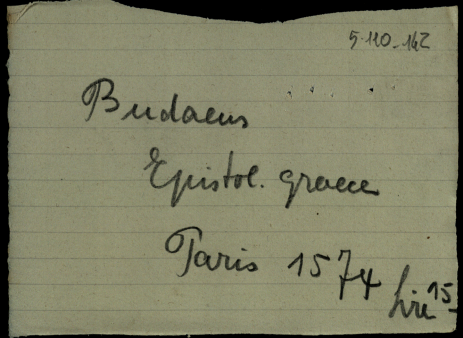 5-110-142
Budaeus
Epistol. graece
Paris 1574
Lire 15-